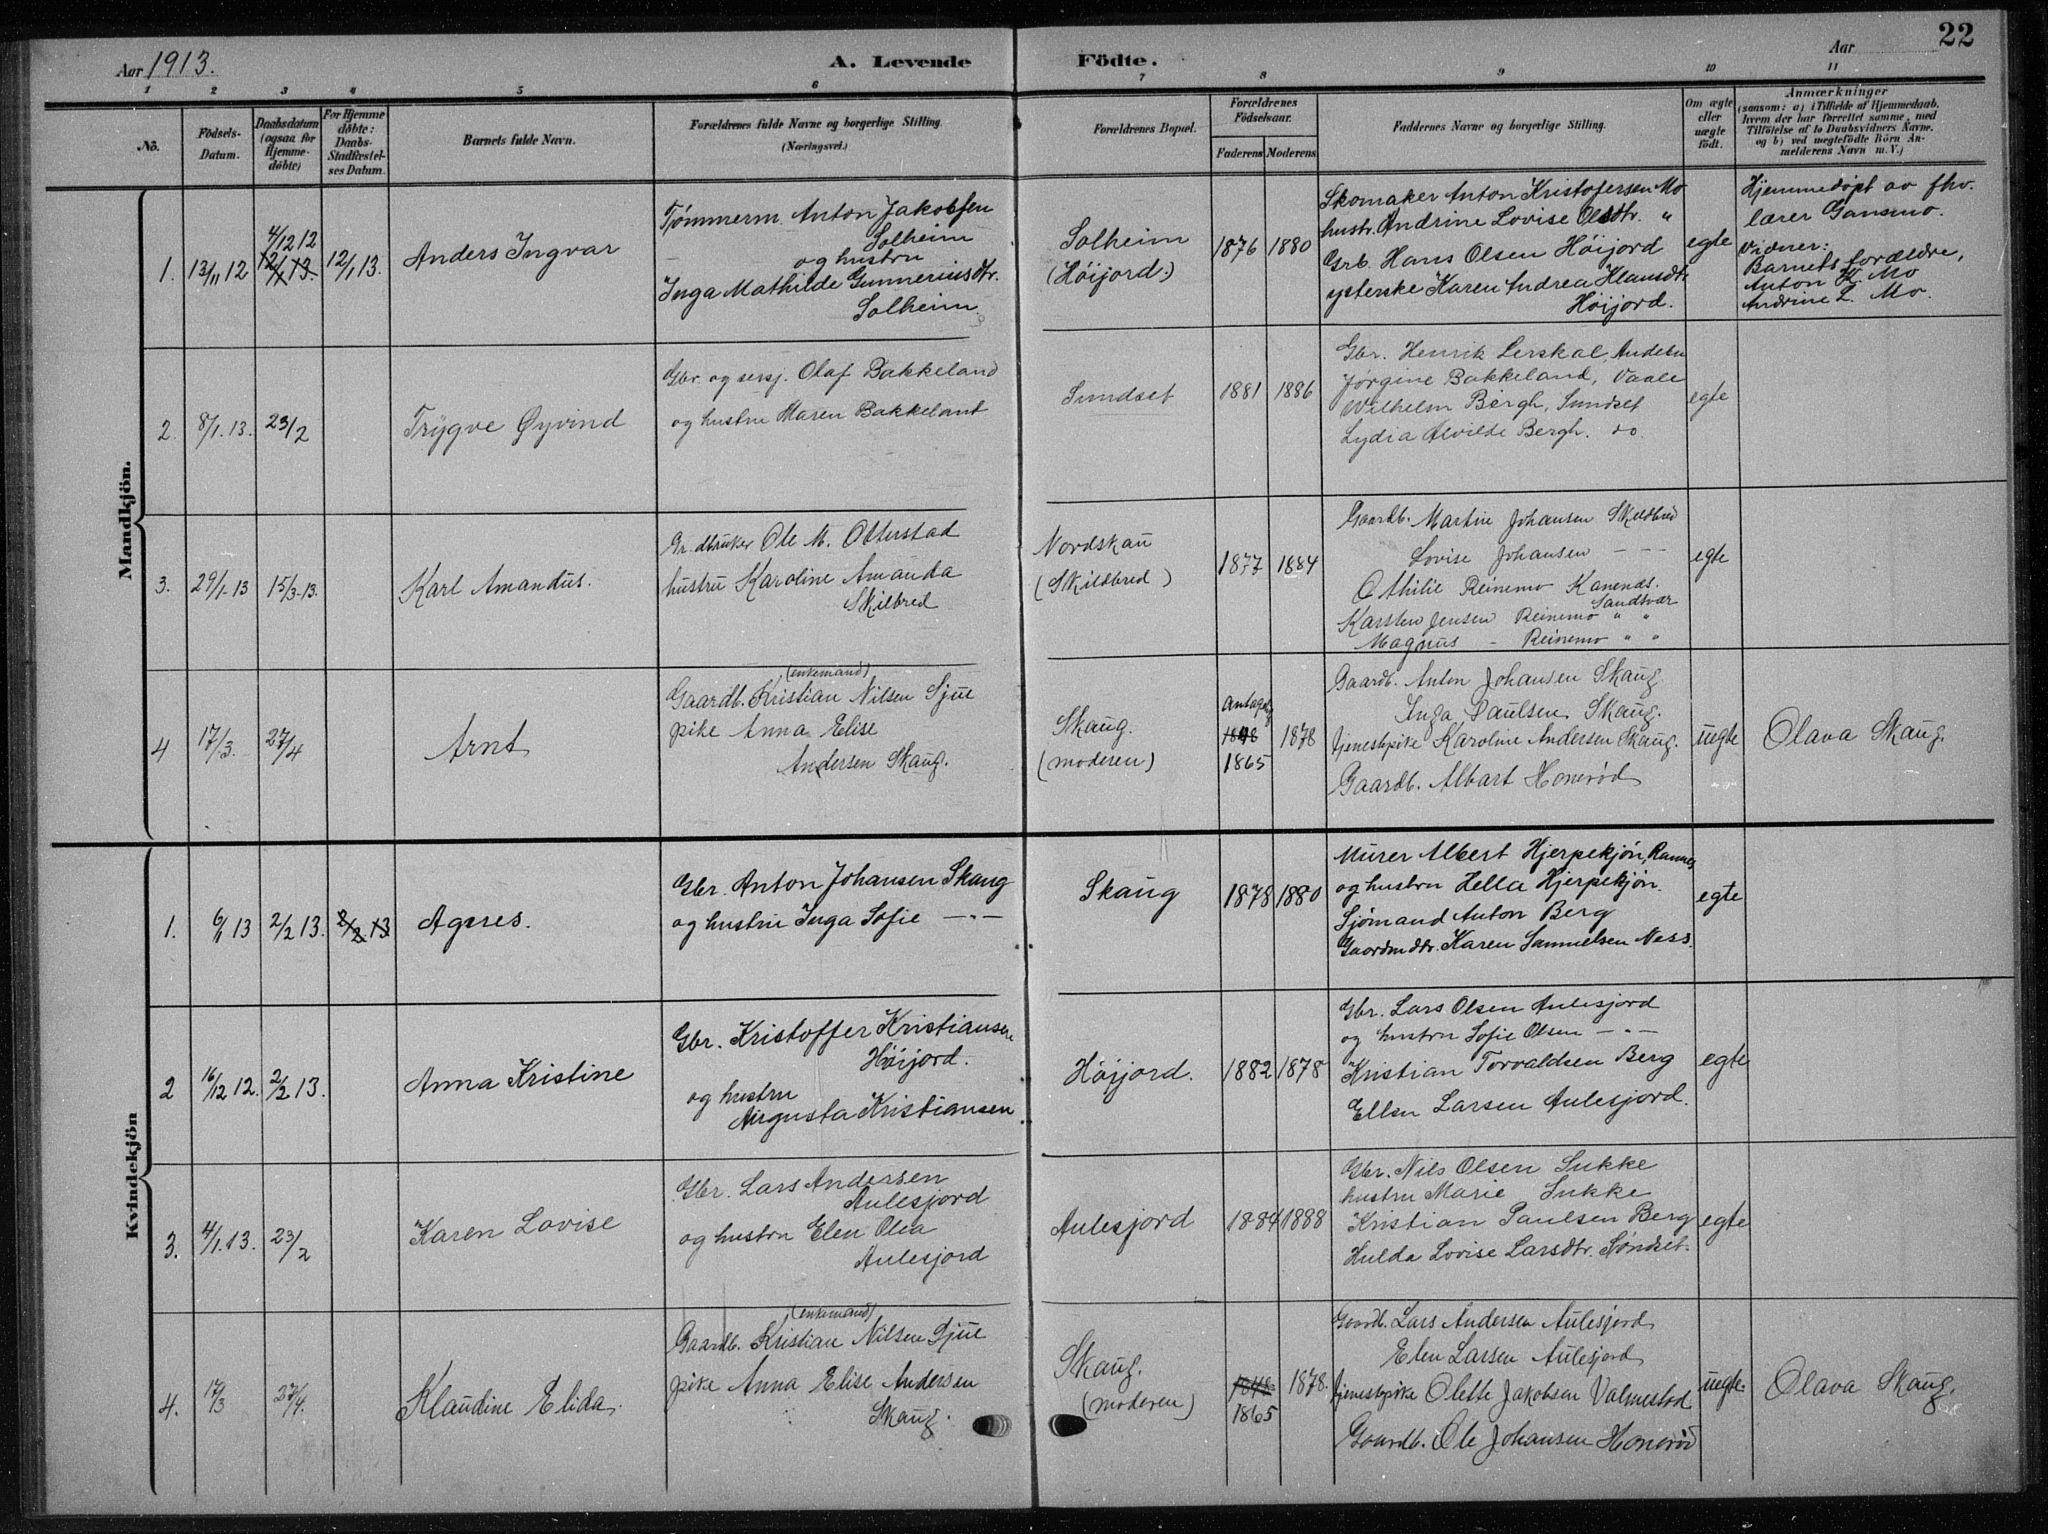 Aar 1913.
A. Levende Födte.
Aar
22
1 2 3 4 5 6 7 8 9 10 11
No.
Födsels-Datum.
Daabsdatum (ogsaa for Hjemmedöbte)
For Hjemmedöbte: Daabs-Stadfæstelses Datum.
Barnets fulde Navn.
Forældrenes fulde Navne og borgerlige Stilling. (Næringsvei.)
Forældrenes Bopæl.
Forældrenes Födselsaar.
Faderens Moderens
Faddernes Navne og borgerlige Stilling.
Om ægte eller uægte födt.
Anmærkninger
(saasom: a) i Tilfælde af Hjemmedaab,
hvem der har forrettet samme, med
Tilföielse af to Daabsvidners Navne.
og b) ved uegtefödte Börn An-
melderens Navn m. V.)
Mandkjön.
1. 13/11 12 4/12 12 12/1 13. 12/1 13.
Anders Ingvar
Tjømmerm. Anton Jakobsen
Solheim
og hustru
Inga Mathilde Gunneriusdtr.
Solheim
Solheim
(Høijord.)
1876 1880
Skomaker Anton Kristofersen Mo
hustr. Andrine Lovise Olsdtr. "
Grb. Hans Olsen Høijord
ysterske Karen Andrea Hansdtr
Høijord.
egte
Hjemmedøpt av fhv.
lærer Gansmo.
Vidner:
Barnets forældre,
Anton K. Mo
Andrine L. Mo.
2. 8/1. 13. 23/2
Trygve Øyvind
Gbr. og sersj. Olaf Bakkeland
og hustru Maren Bakkelant
Sundset
1881 1886
Gbr. Henrik Lerskal, Andebu
Jørgine Bakkeland, Vaale
Wilhelm Bergh, Sundset
Lydia Alvilde Bergh. do.
egte
3. 29/1-13 15/3-13.
Karl Amandus.
Gr.dbruker Ole M. Otterstad
hustru Karoline Amanda
Skilbred
Nordskau
(Skildbred)
1877 1884
Gaardb. Martin Johansen Skildbred
Lovise Johansen — — —
Othilie Reinemo Kanenæs.
Sandsvær
Karsten Jensen Reinemo " "
Magnus - Reinemo " "
egte
4 17/3. 27/4
Arnt
(enkemand)
Gaardb. Kristian Nilsen Sjue
pike Anna Elise
Andersen Skaug.
Skaug.
(moderen)
1848
1865 1878
Gaardb. Anton Johansen Skaug.
Inga Paulsen Skaug.
tjenestepike Karoline Andersen Skaug.
Gaardb. Albart Honerød
uegte
Olava Skaug.
Kvindekjön
1. 6/1 13 2/2 13. 2/2 13
Agnes.
Gbr. Anton Johansen Skaug
og hustru Inga Sofie —"—
Skaug
1878 1880
Murer Albert Hjerpekjøn, Ramnes
og hustru Hella Hjerpekjøn.
Sjømand Anton Berg
Gaardmdtr. Karen Samuelsen Ness.
egte
2 16/12 12. 2/2 13.
Anna Kristine
Gbr. Kristoffer Kristiansen
Høijord.
og hustru
Augusta Kristiansen
Høijord.
1882 1878
Gbr. Lars Olsen Aulesjord
og hustru Sofie Olsen —"—
Kristian Torvaldsen Berg
Ellen Larsen Aulesjord.
egte
3. 4/1. 13. 23/2
Karen Lovise
Gbr. Lars Andersen
Aulesjord
og hustru Elen Olea
Aulesjord
Aulesjord
1884 1888
Gbr. Nils Olsen Sukke
hustru Marie Sukke
Kristian Paulsen Berg
Hulda Lovise Larsdtr. Søndset.
egte
4. 17/3 27/4.
Klaudine Elida.
(enkemand)
Gaardb. Kristian Nilsen Sjue
pike Anna Elise Andersen
Skaug.
Skaug.
(moderen)
1848
1865 1878.
Gaardb. Lars Andersen Aulesjord
Elen Larsen Aulesjord
tjenestepike Olette Jakobsen Valmestad
Gaardb. Ole Johansen Honerød
uegte.
Olava Skaug.